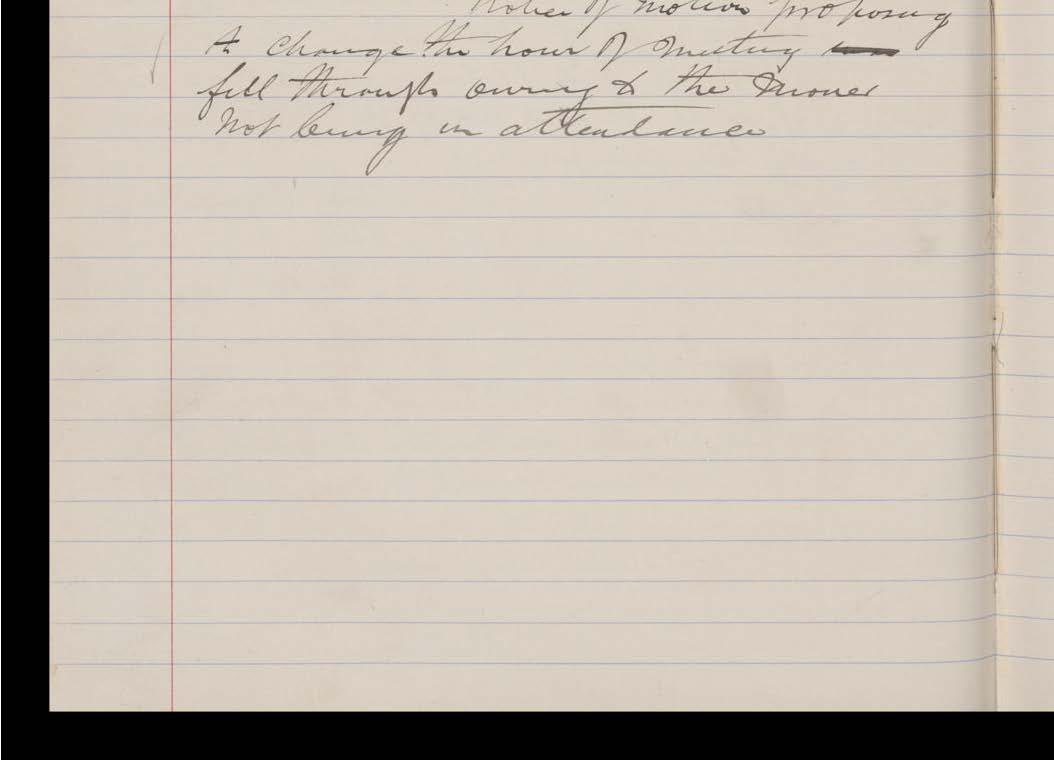 Notice of motion proposing
to change the hour of meeting
fell through owing to the mover
not being in attendance